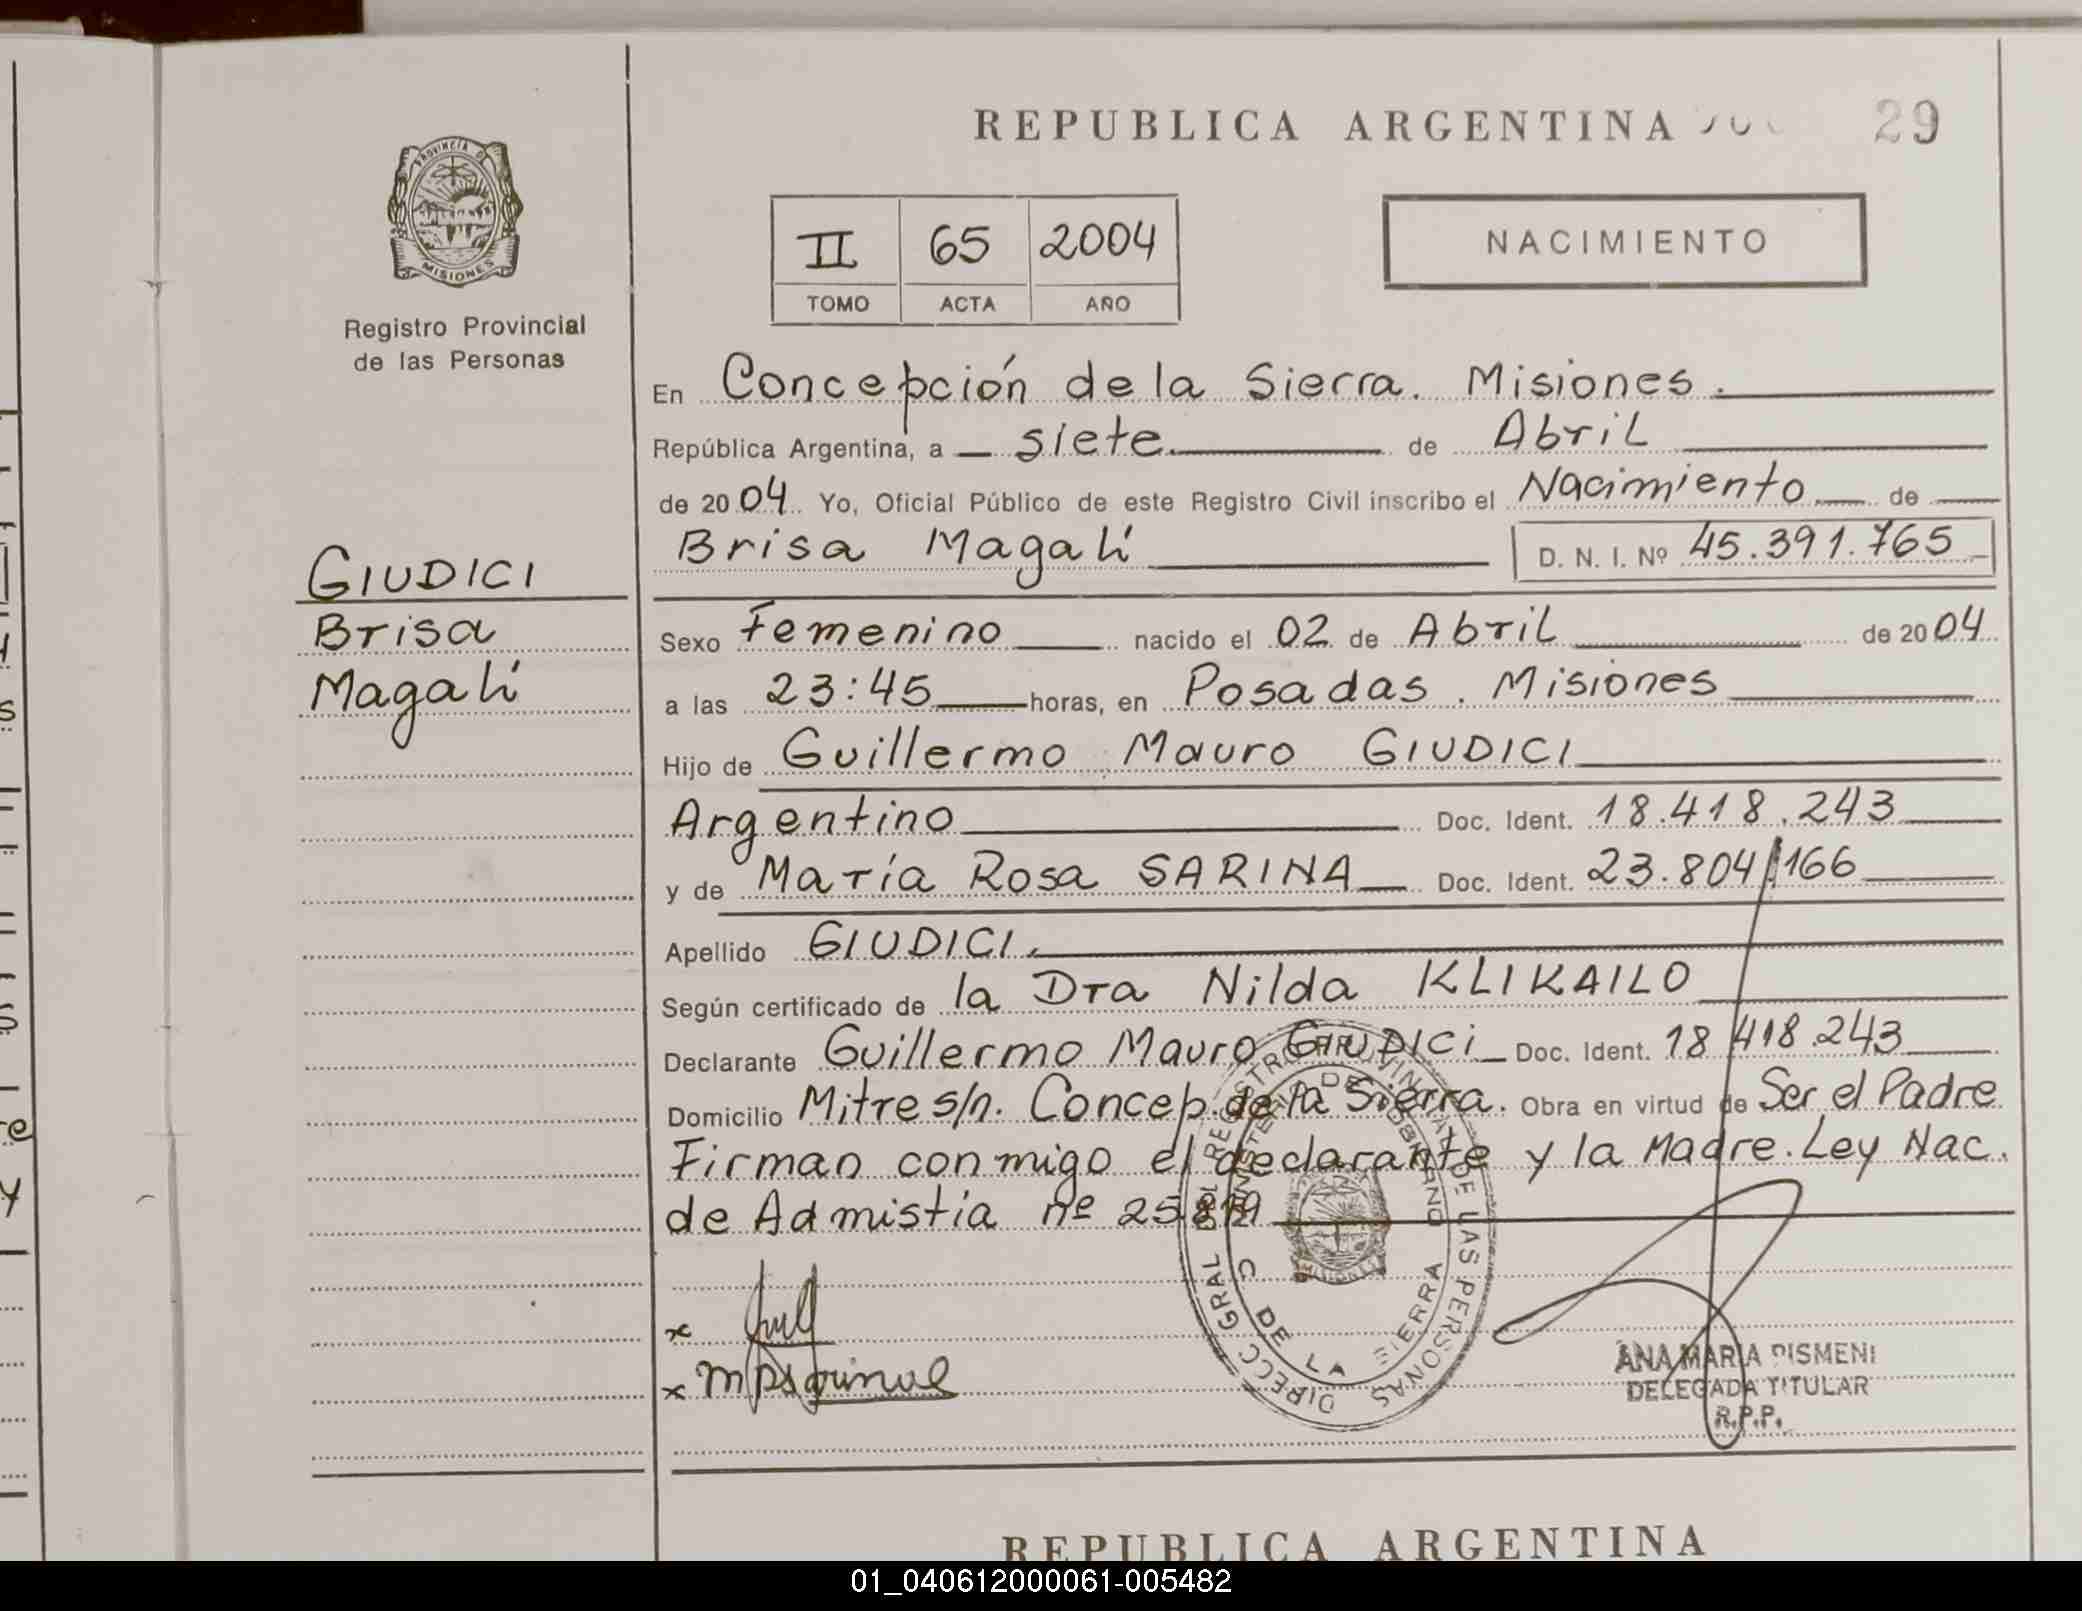 REPUBLICA ARGENTINA 29
PROVINCIA D
MISIONES
Registro Provincial
de las Personas
II 65 2004
TOMO ACTA AÑO
NACIMIENTO
En Concepción de la Sierra. Misiones.
República Argentina, a siete de Abril
de 2004 Yo, Oficial Público de este Registro Civil inscribo el Nacimiento de
Brisa Magalí D. N. I. Nº 45.391.765
GIUDICI
Brisa
Magalí
Sexo Femenino nacido el 02 de Abril de 2004
a las 23:45 horas, en Posadas. Misiones
Hijo de Guillermo Mauro GIUDICI
Argentino Doc. Ident. 18.418.243
y de María Rosa SARINA Doc. Ident. 23.804.166
Apellido GIUDICI.
Según certificado de la Dra Nilda KLIKAILO
Declarante Guillermo Mauro GIUDICI Doc. Ident. 18.418.243
Domicilio Mitre s/n. Concep. de la Sierra. Obra en virtud de Ser el Padre
Firman conmigo el declarante y la Madre. Ley Nac.
de Admistía nº 25819
DIRECC GRAL DEL REGISTRO PROVINCIAL DE LAS PERSONAS
MINISTERIO DE GOBIERNO
C DE LA SIERRA
x
x
ANA MARIA PISMENI
DELEGADA TITULAR
R.P.P.
REPUBLICA ARGENTINA
01_040612000061-005482